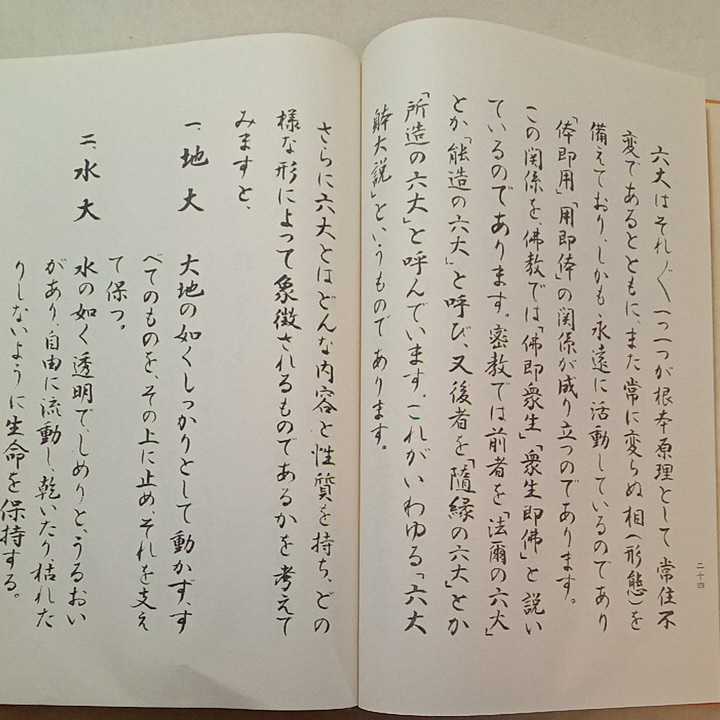 六大はそれ〴〵一つ一つが根本原理として常住不
変であるとともに、また常に変らぬ相(形態)を
備えており、しかも永遠に活動しているのであり
「体即用」「用即体」の関係が成り立つのであります。
この関係を、佛教では「佛即衆生」「衆生即佛」と説い
ているのであります。密教では前者を「法爾の六大」
とか「能造の六大」と呼び、又後者を「随縁の六大」とか
「所造の六大」と呼んでいます。これがいわゆる「六大
体大説」というものであります。
二十四
さらに六大とはどんな内容と性質を持ち、どの
様な形によって象徴されるものであるかを考えて
みますと、
一、地大 大地の如くしっかりとして動かず、す
べてのものを、その上に止め、それを支え
て保つ。
二、水大 水の如く透明で、しめりと、うるおい
があり、自由に流動し、乾いたり枯れた
りしないように生命を保持する。